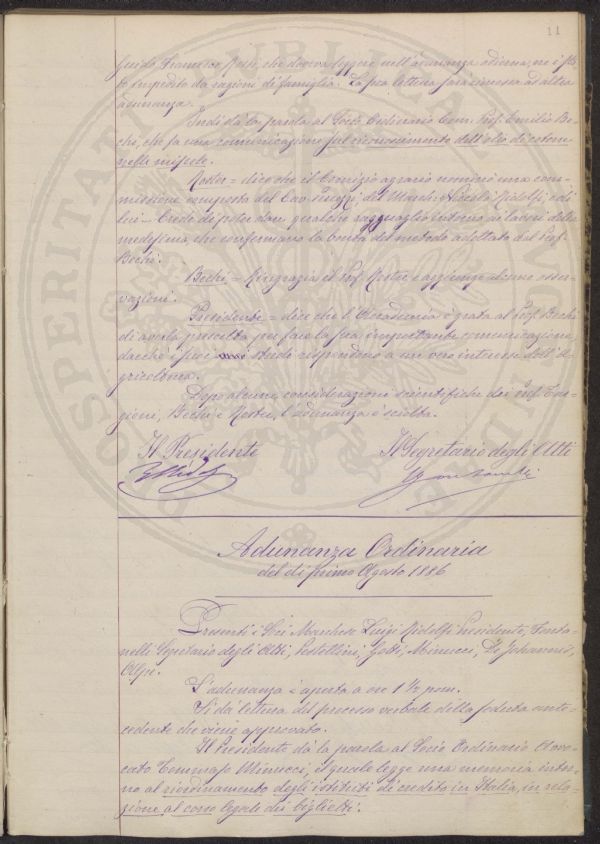 11
Guido Francesco Rossi, che doveva leggere nell'adunanza odierna, ne
fu impedito da ragioni di famiglia. La sua lettura sarà rimessa ad altra
adunanza.
Indi dà la parola al Socio Ordinario Com. Prof. Emilio Be-
chi, che fa una comunicazione sul riconoscimento dell'olio di cotone
nelle miscele.
Roster = dice che il Comizio agrario nominò una com-
missione composta del Cav. del March. Niccolò Ridolfi, e di
lui — Crede di poter dare qualche ragguaglio intorno ai lavori della
medesima, che confermano la bontà del metodo adottato dal Prof.
Bechi.
Bechi = Ringrazia il Prof. Roster e aggiunge alcune osser-
vazioni.
Presidente = dice che l'Accademia è grata al Prof. Bechi
di averla prescelta per fare la sua importante comunicazione,
dacchè i suoi studi rispondono a un vero interesse dell'A-
gricoltura.
Dopo alcune considerazioni scientifiche dei Prof. Tar-
gioni, Bechi e Roster, l'adunanza è sciolta.
Il Presidente
Il Segretario degli Atti
Adunanza Ordinaria
del dì primo Agosto 1886
Presenti i Soci Marchese Luigi Ridolfi Presidente, Fonta-
nelli Segretario degli Atti, Pestellini, Gotti, Minucci, De Johannis,
Alpe.
L'adunanza è aperta a ore 1 1/2 pom.
Si dà lettura del processo verbale della seduta ante-
cedente che viene approvato.
Il Presidente dà la parola al Socio Ordinario Avvo-
cato Tommaso Minucci, il quale legge una memoria intor-
no al riordinamento degli istituti di credito in Italia, in rela-
zione al corso legale dei biglietti.
PROSPERITATI PUBLICAE